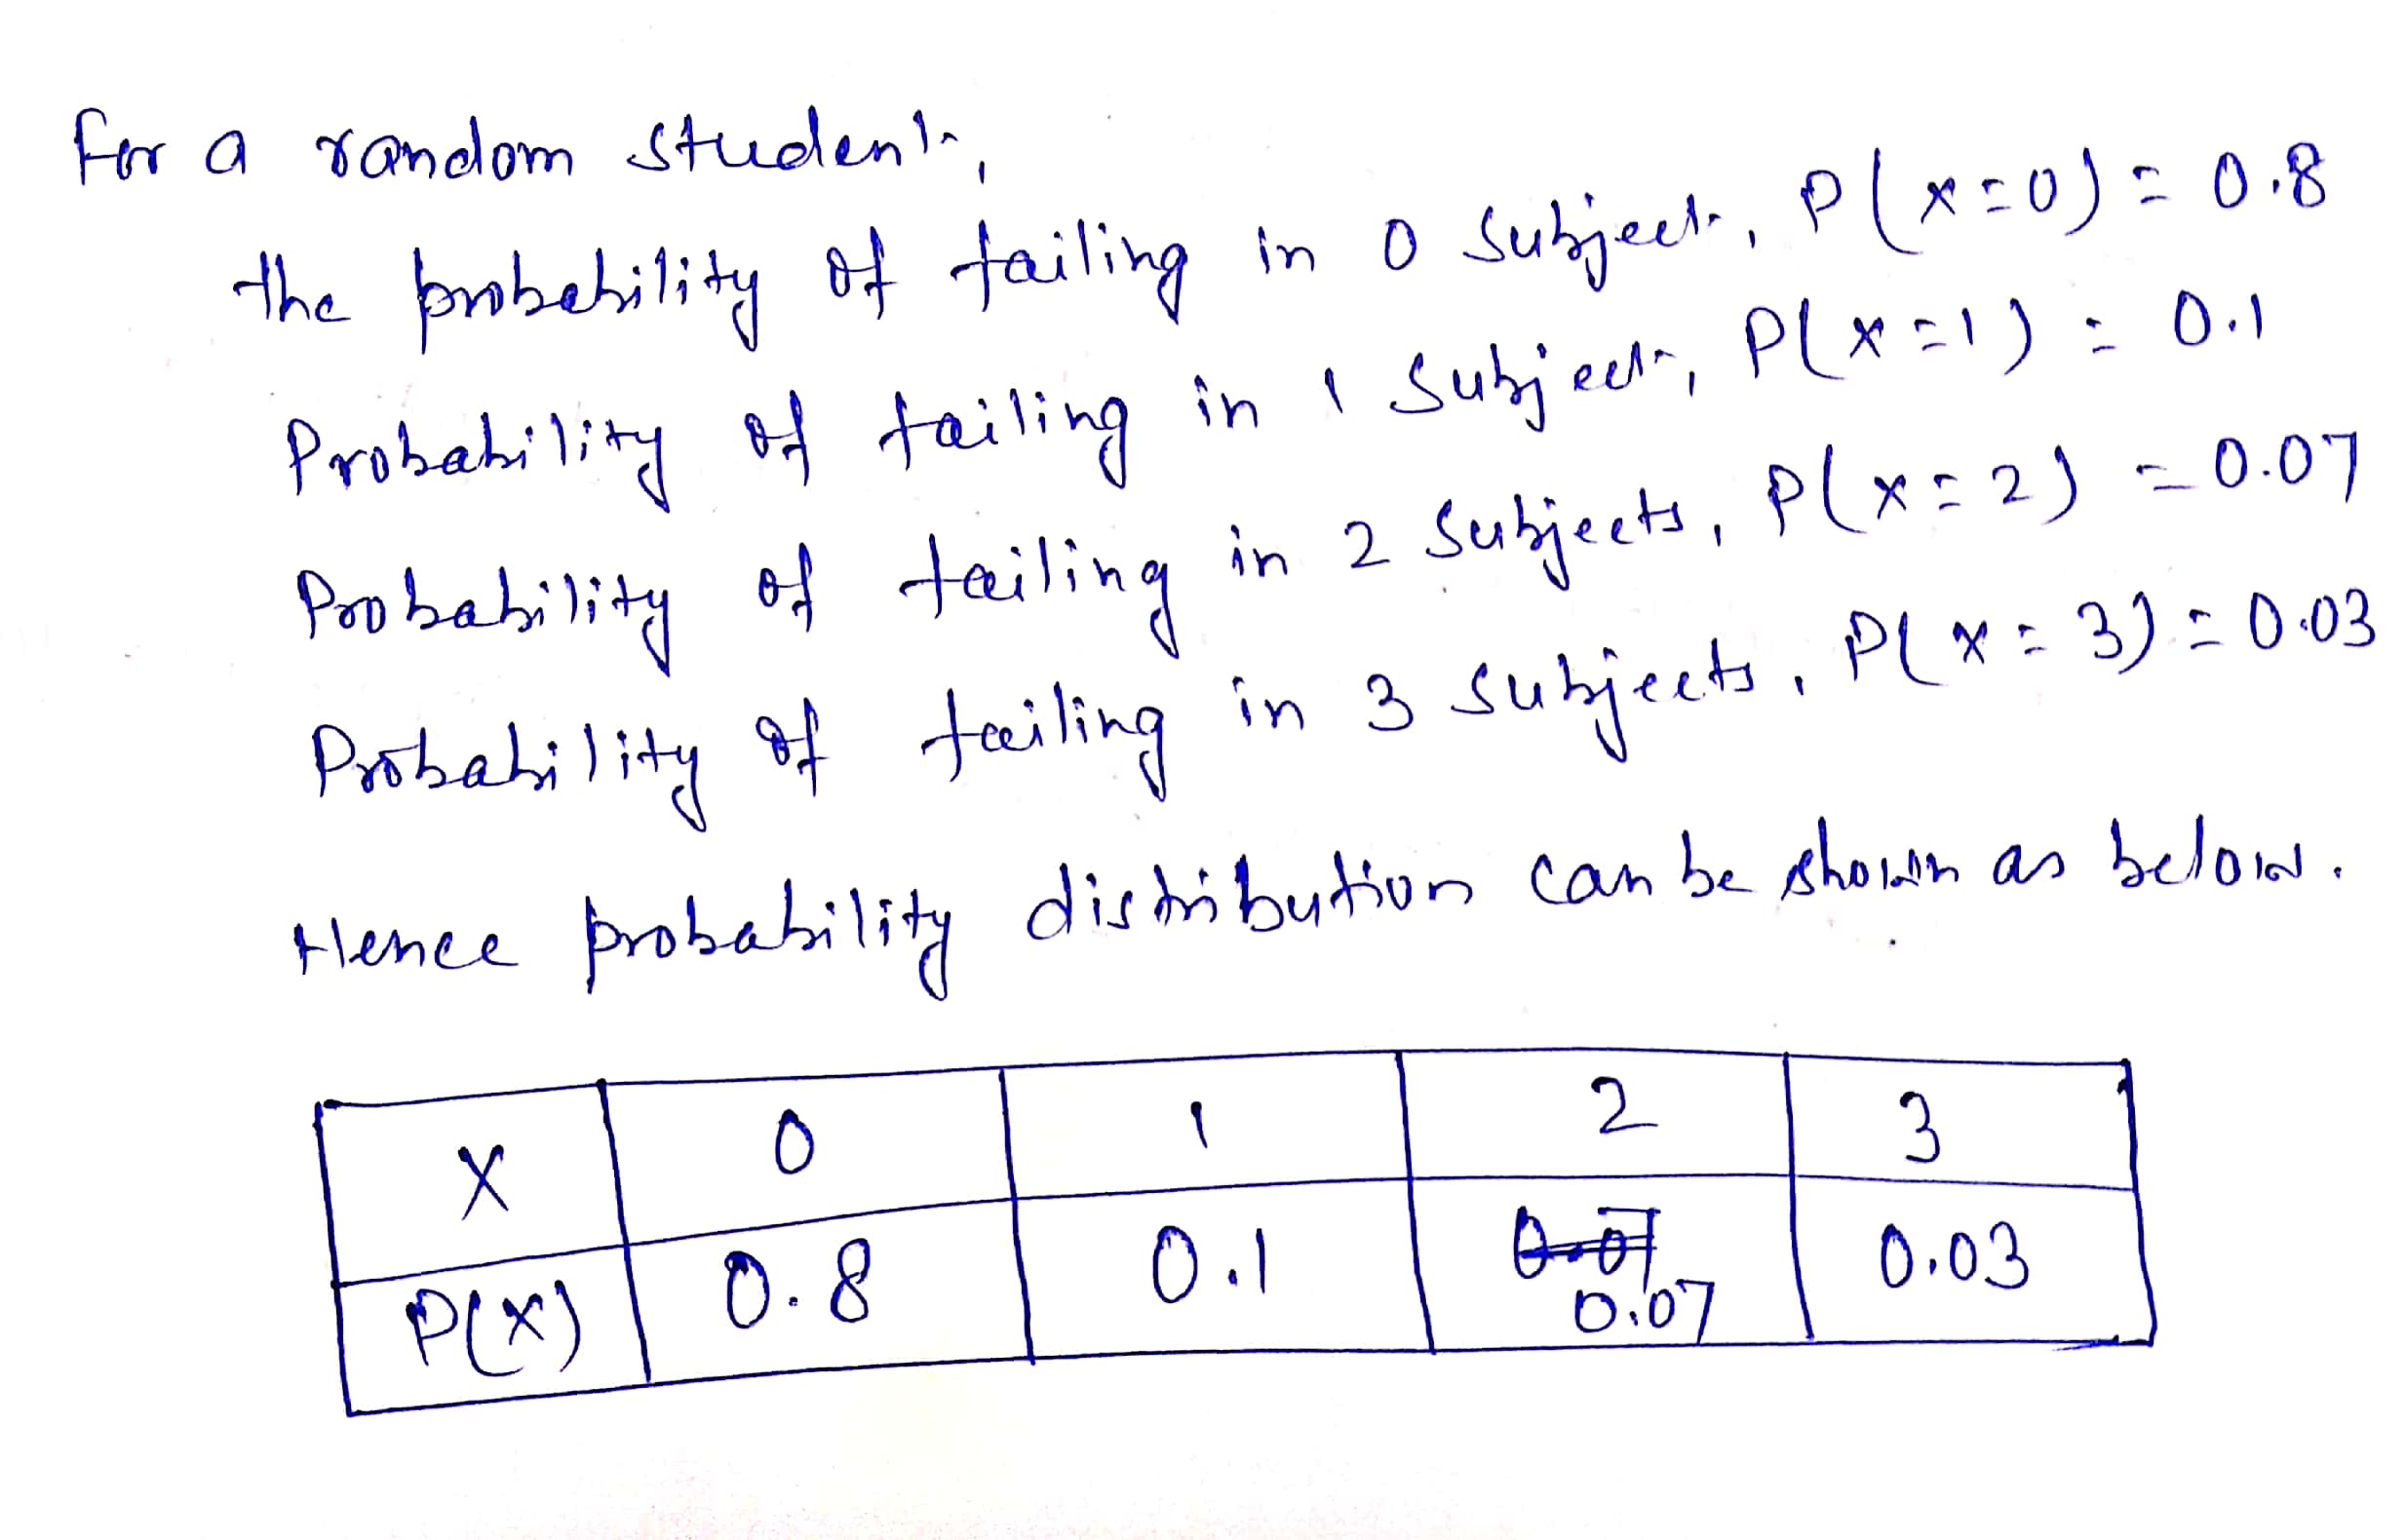 For a random student,
the probability of failing in 0 subject, P(X=0) = 0.8
Probability of failing in 1 subject, P(X=1) = 0.1
Probability of failing in 2 subjects, P(X=2) = 0.07
Probability of failing in 3 subjects, P(X=3) = 0.03
Hence probability distribution can be shown as below.
X 0 1 2 3
P(X) 0.8 0.1 0.07 0.03